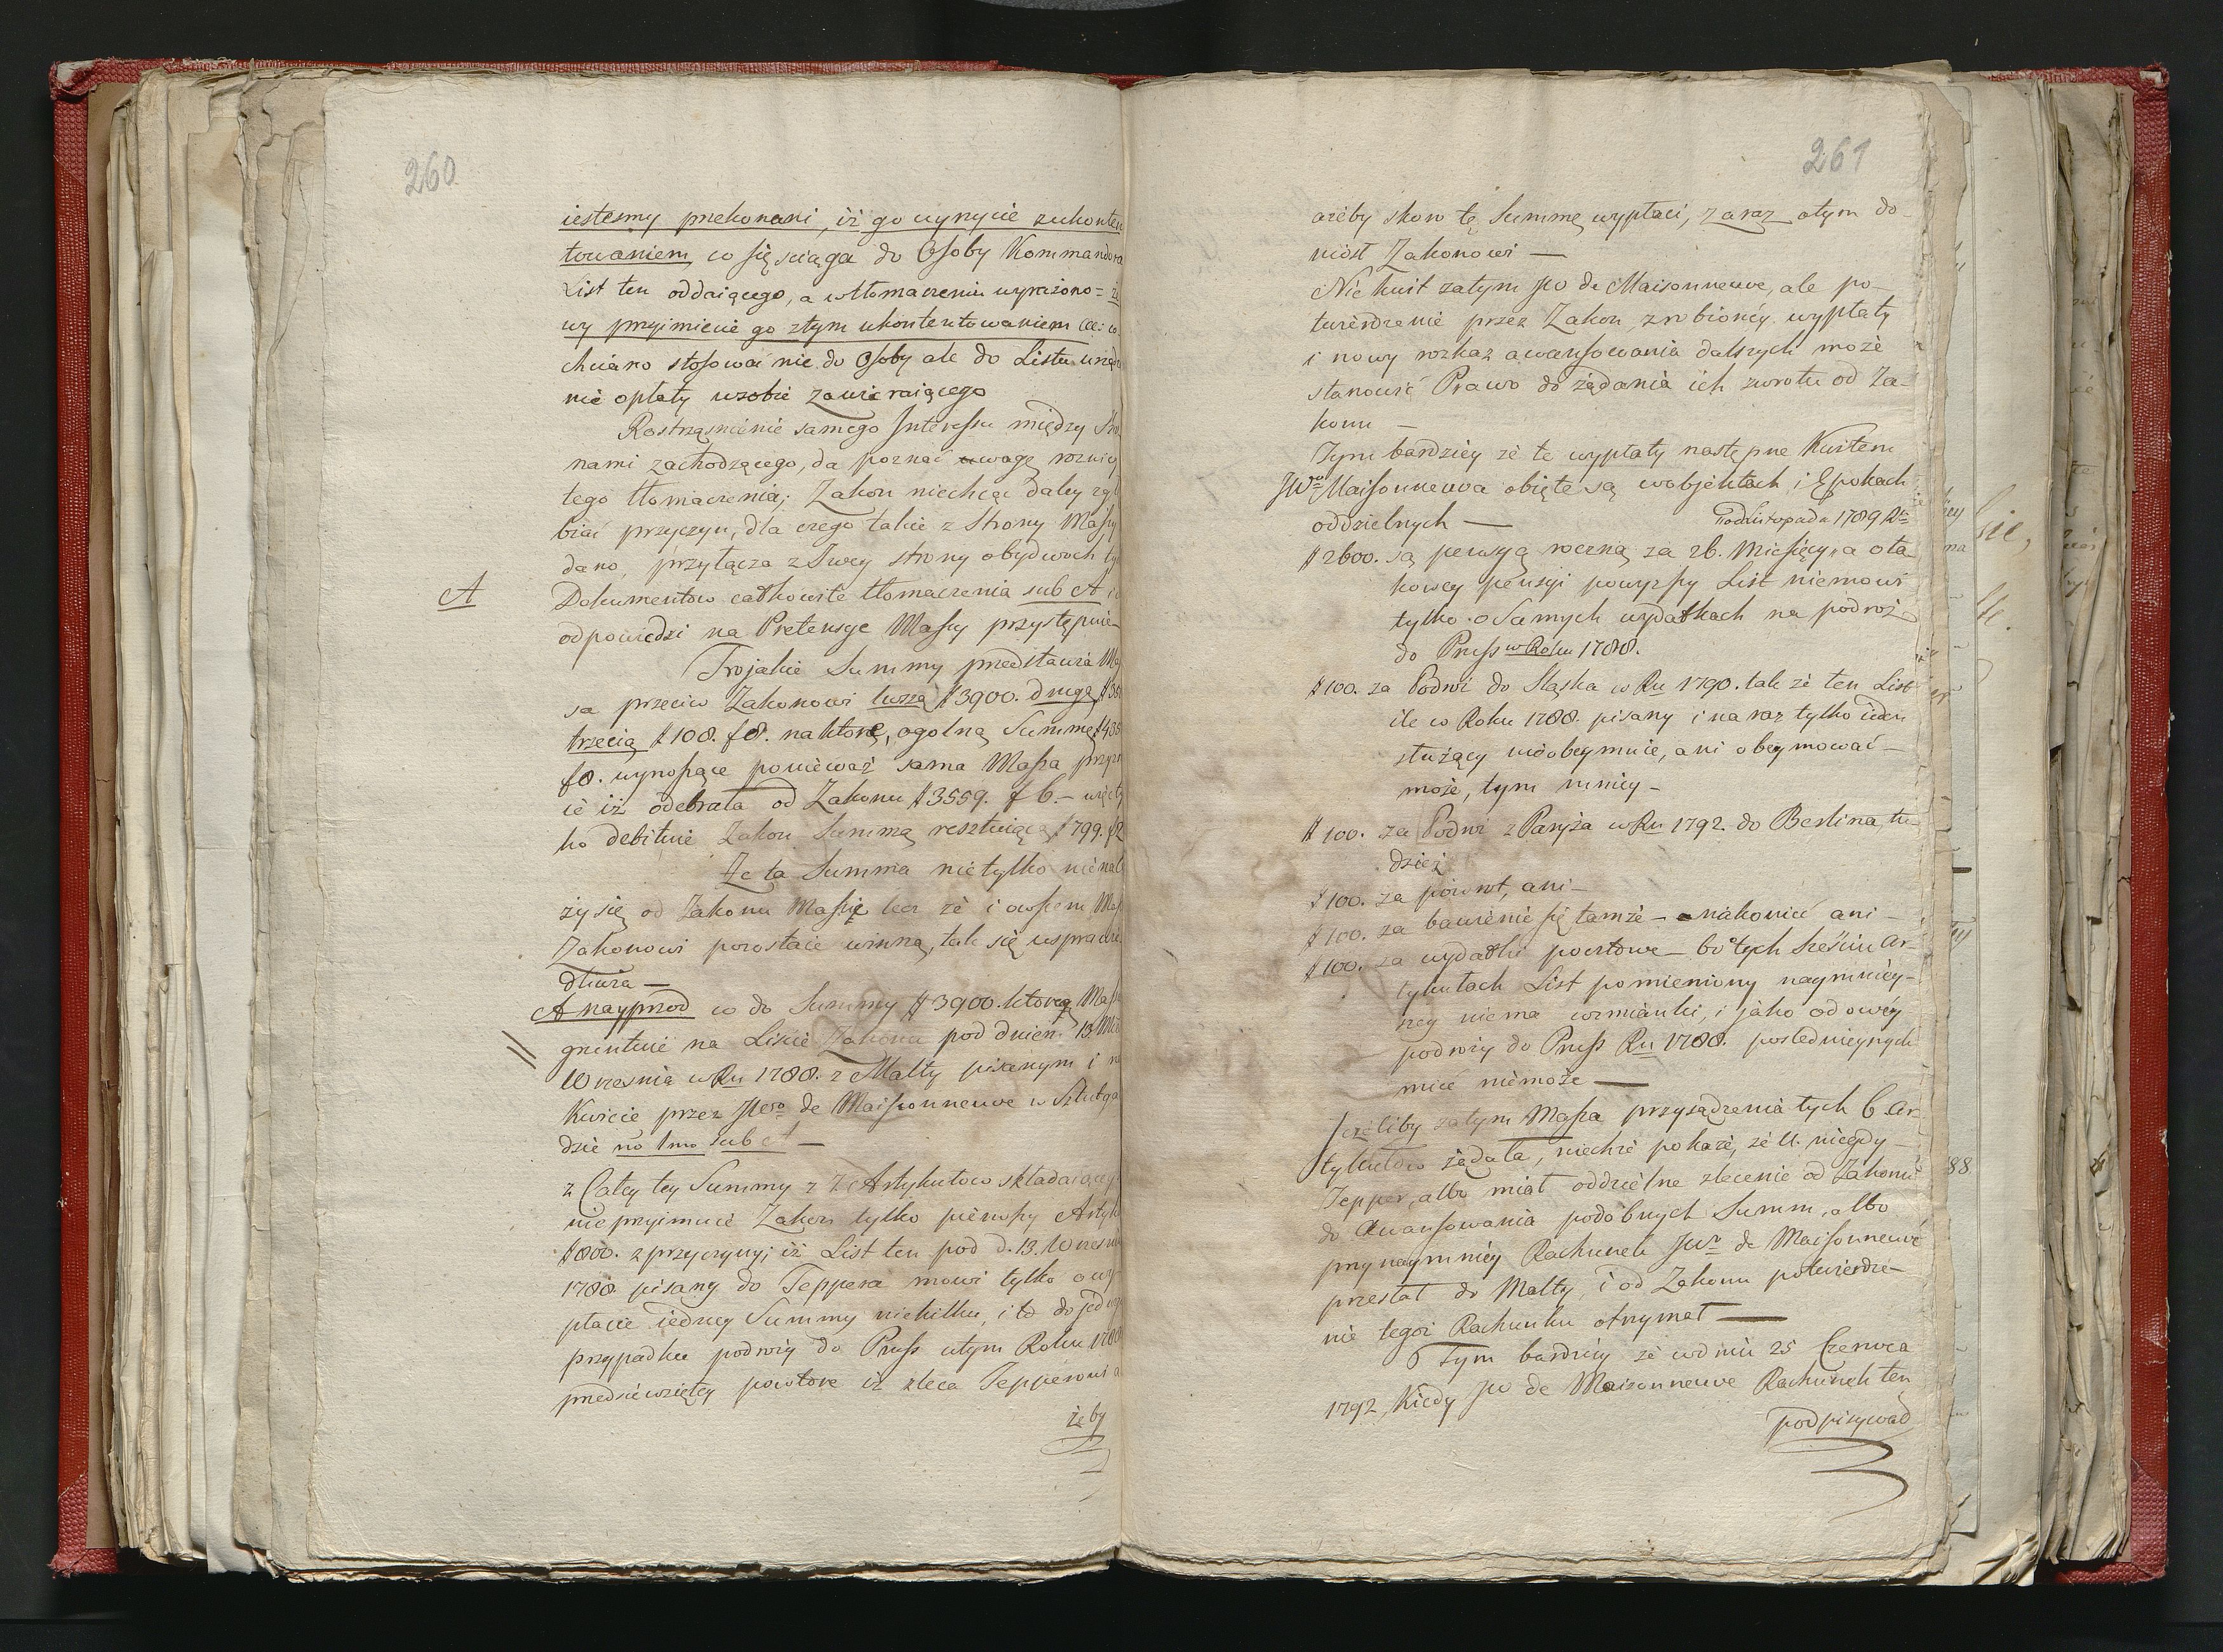 260
iestesmy przekonani, iż go uzyycie zukonten
towaniem, co się sciąga do Osoby Kommandora
List ten oddaiącego, a w tłomaczeniu wyrażono = że
wy przyimiecie go ztym ukontentowaniem &c: co
chciano stosować nie do Osoby ale do Listu
nie opłaty wsobie zawieraiącego
Rostrząsnienie samego Interessu między Stro
nami zachodzącego, da poznać uwagę rozney
tego tłomaczenia; Zakon niechcąc daley zgłę
biać przyczyn, dla czego takie z Strony Massy
dano, przyłącza z Swey strony obydwoch tych
A
Dokumentow całkowite tłomaczenia sub A i
odpowiedzi na Pretensye Massy przystępuie—
Trojakie Summy przedstawia Ma
sa przeciw Zakonowi 1wszą # 3900. drugą # 35
trzecią # 108. f 8. na ktorą, ogolną Summę # 435
f 8. wynoszące ponieważ sama Massa przyzn
ie iż odebrała od Zakonu # 3559. f 6. — więc ty
ko debituie Zakon Summą resztuiącą # 799. f 2
Że ta Summa nie tylko nie nale
ży się od Zakonu Massie lecz że i owszem Mas
Zakonowi pozostaie winną, tak się usprawie
dliwia —
A nayprzod co do Summy # 3900. ktorą Massa
gruntuie na Liście Zakonu pod dniem 13. Mca
Wrzesnia w Ru 1788. z Malty pisanym i na
Kwicie przez JWo de Maisonneuve w Sztutga
dzie no 1mo sub A —
z Całey tey Summy z 7. Artykułow składaiącey
nie przyimuie Zakon tylko pierwszy Artyk
# 800. z przyczyny; iż List ten pod d. 13. Wrzesnia
1788. pisany do Teppera mowi tylko o wy
płacie iedney Summy niekilku, i to do jedneg
przypadku podroży do Pruss w tym Roku 1788
przedsiewziętey powtore iż zleca Tepperowi a
żeby
261
ażeby skoro tę Summę wypłaci, zaraz o tym do-
niosł Zakonowi —
Nie kwit zatym JW de Maisonneuve, ale po-
twierdzenie przez Zakon, zrobioney wypłaty
i nowy rozkaz awansowania dalszych może
stanowić Prawo do żądania ich zwrotu od Za-
konu —
Tym bardziey że te wypłaty następne Kwitem
JWo Maisonneuva obięte są w objektach i Epokach
oddzielnych —
od Listopada 1789 Rku
# 2600. są pensyą roczną za 26. Miesięcy, a o ta
kowey pensyi powyzszy List niemowi
tylko o Samych wydatkach na podroż
do Pruss w Roku 1788.
# 100. za Podroż do Sląska w Ru 1790. tak że ten List
ile w Roku 1788. pisany i na raz tylko ieden
służący nieobeymuie, ani obeymować —
może, tym mniey —
# 100. za Podroż z Paryża w Ru 1792. do Berlina, tu-
dzież
# 100. za powrot, ani —
# 100. za bawienie się tamże — a nakoniec ani —
# 100. za wydatki pocztowe — bo o tych sześciu Ar-
tykułach List pomieniony naymniey-
szey niema wzmianki, i jako od owey
podroży do Pruss Ru 1788. poslednieyszych
mieć niemoże —
Jeżeliby zatym Massa przysądzenia tych 6. Ar-
tykułow żądała, niechże pokaże, że U. niegdy —
Tepper, albo miał oddzielne zlecenie od Zakonu
do Awansowania podobnych Summ, albo
przynaymniey Rachunek JWo de Maisonneuve
przesłał do Malty, i od Zakonu potwierdze-
nie tegoż Rachunku otrzymał —
Tym bardziey że w dniu 25 Czerwca
1792. Kiedy JW de Maisonneuve Rachunek ten
podpisywał